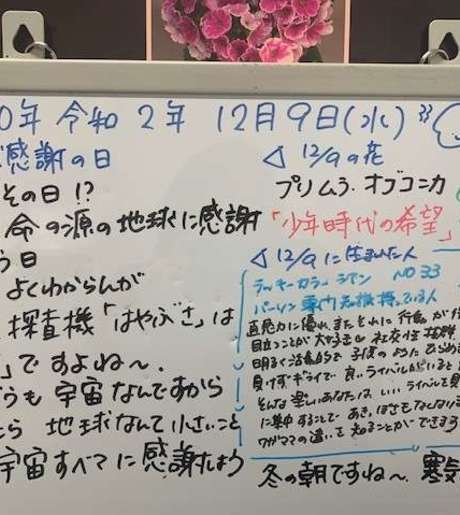 0年 令和 2年 12月9日(水)
感謝の日
その日!?
命の源の地球に感謝
う日
よくわからんが
探査機「はやぶさ」は
」ですよね〜.
うも 宇宙なんですから
たら 地球なんて小さいこと
宇宙すべてに感謝しよう
◁ 12/9の花
プリムラ・オブコニカ
「少年時代の希望」
◁ 12/9に生まれた人
ラッキーカラー シアン NO 33
パーソン
直感力に優れ、またそれに行動が
目立つことが大好き 社交性抜群
明るく活動的で 子供のように
負けずギライで 良いライバルがいると
そんな楽しいあなたは、いいライバルを
に集中することで あき
ワガママの違いを知ることができます
冬の朝ですね〜. 寒気